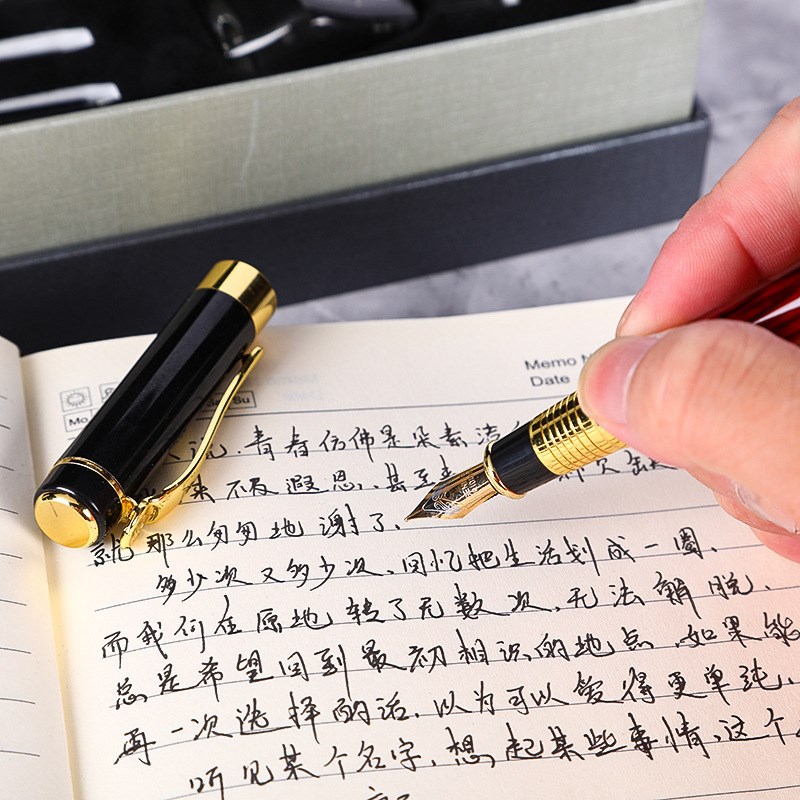 Memo
Date
Mo Su
说,青春仿佛是朵素洁
来不及遐思,甚至
就那么匆匆地谢了,
多少次又多少次,回忆把生活划成一圈,
而我们在原地转了无数次,无法解脱,
总是希望回到最初相识的地点,如果能
再一次选择的话,以为可以爱得更单纯,
听见某个名字,想起某些事情,这个